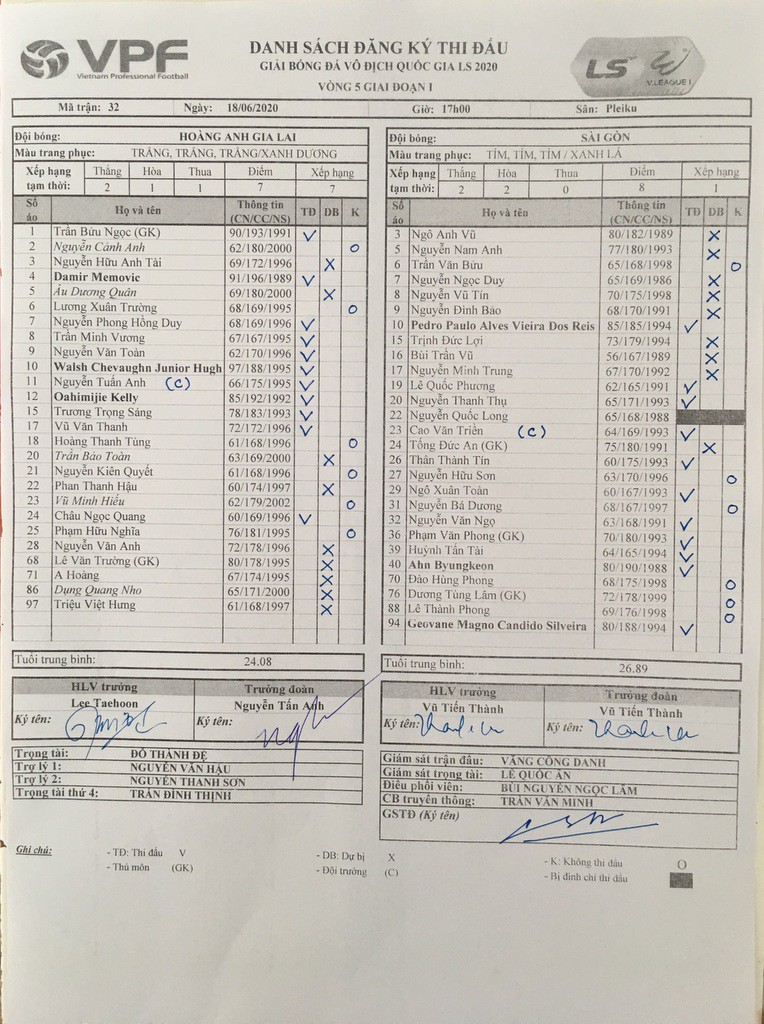 VPF
Vietnam Professional Football
DANH SÁCH ĐĂNG KÝ THI ĐẤU
GIẢI BÓNG ĐÁ VÔ ĐỊCH QUỐC GIA LS 2020
VÒNG 5 GIAI ĐOẠN I
LS V.LEAGUE 1
Mã trận: 32 Ngày: 18/06/2020 Giờ: 17h00 Sân: Pleiku
Đội bóng: HOÀNG ANH GIA LAI
Màu trang phục: TRẮNG, TRẮNG, TRẮNG/XANH DƯƠNG
Xếp hạng tạm thời: Thắng Hòa Thua Điểm Xếp hạng
2 1 1 7 7
Số áo Họ và tên Thông tin (CN/CC/NS) TĐ DB K
1 Trần Bửu Ngọc (GK) 90/193/1991 V
2 Nguyễn Cảnh Anh 62/180/2000 O
3 Nguyễn Hữu Anh Tài 69/172/1996 X
4 Damir Memovic 91/196/1989 V
5 Âu Dương Quân 69/180/2000 X
6 Lương Xuân Trường 68/169/1995 O
7 Nguyễn Phong Hồng Duy 68/169/1996 V
8 Trần Minh Vương 67/167/1995 V
9 Nguyễn Văn Toàn 62/170/1996 V
10 Walsh Chevaughn Junior Hugh 97/188/1995 V
11 Nguyễn Tuấn Anh (C) 66/175/1995 V
12 Oahimijie Kelly 85/192/1992 V
15 Trương Trọng Sáng 78/183/1993 V
17 Vũ Văn Thanh 72/172/1996 V
18 Hoàng Thanh Tùng 61/168/1996 O
20 Trần Bảo Toàn 63/169/2000 X
21 Nguyễn Kiên Quyết 61/168/1996 O
22 Phan Thanh Hậu 60/174/1997 X
23 Vũ Minh Hiếu 62/179/2002 O
24 Châu Ngọc Quang 60/169/1996 V
25 Phạm Hữu Nghĩa 76/181/1995 O
28 Nguyễn Văn Anh 72/178/1996 X
68 Lê Văn Trường (GK) 80/178/1995 X
71 A Hoàng 67/174/1995 X
86 Dụng Quang Nho 65/171/2000 X
97 Triệu Việt Hưng 61/168/1997 X
Tuổi trung bình: 24.08
HLV trưởng Trưởng đoàn
Lee Taehoon Nguyễn Tấn Anh
Ký tên: Ký tên:
Trọng tài: ĐỖ THÀNH ĐỆ
Trợ lý 1: NGUYỄN VĂN HẬU
Trợ lý 2: NGUYỄN THANH SƠN
Trọng tài thứ 4: TRẦN ĐÌNH THỊNH
Đội bóng: SÀI GÒN
Màu trang phục: TÍM, TÍM, TÍM / XANH LÁ
Xếp hạng tạm thời: Thắng Hòa Thua Điểm Xếp hạng
2 2 0 8 1
Số áo Họ và tên Thông tin (CN/CC/NS) TĐ DB K
3 Ngô Anh Vũ 80/182/1989 X
5 Nguyễn Nam Anh 77/180/1993 X
6 Trần Văn Bửu 65/168/1998 O
7 Nguyễn Ngọc Duy 65/169/1986 X
8 Nguyễn Vũ Tín 70/175/1998 X
9 Nguyễn Đình Bảo 68/170/1991 X
10 Pedro Paulo Alves Vieira Dos Reis 85/185/1994 V
15 Trịnh Đức Lợi 73/179/1994 X
16 Bùi Trần Vũ 56/167/1989 X
17 Nguyễn Minh Trung 67/170/1992 X
19 Lê Quốc Phương 62/165/1991 V
20 Nguyễn Thanh Thụ 65/171/1993 V
22 Nguyễn Quốc Long 65/168/1988
23 Cao Văn Triền (C) 64/169/1993 V
24 Tống Đức An (GK) 75/180/1991 X
26 Thân Thành Tín 60/175/1993 V
27 Nguyễn Hữu Sơn 63/170/1996 O
29 Ngô Xuân Toàn 60/167/1993 V
31 Nguyễn Bá Dương 68/167/1997 O
32 Nguyễn Văn Ngọ 63/168/1991 V
36 Phạm Văn Phong (GK) 70/180/1993 V
39 Huỳnh Tấn Tài 64/165/1994 V
40 Ahn Byungkeon 80/190/1988 V
70 Đào Hùng Phong 68/175/1998 O
76 Dương Tùng Lâm (GK) 72/178/1999 O
88 Lê Thành Phong 69/176/1998 O
94 Geovane Magno Candido Silveira 80/188/1994 V
Tuổi trung bình: 26.89
HLV trưởng Trưởng đoàn
Vũ Tiến Thành Vũ Tiến Thành
Ký tên: Ký tên:
Giám sát trận đấu: VĂNG CÔNG DANH
Giám sát trọng tài: LÊ QUỐC ÂN
Điều phối viên: BÙI NGUYỄN NGỌC LÂM
CB truyền thông: TRẦN VĂN MINH
GSTĐ (Ký tên)
Ghi chú: - TĐ: Thi đấu V - DB: Dự bị X - K: Không thi đấu O
- Thủ môn (GK) - Đội trưởng (C) - Bị đình chỉ thi đấu